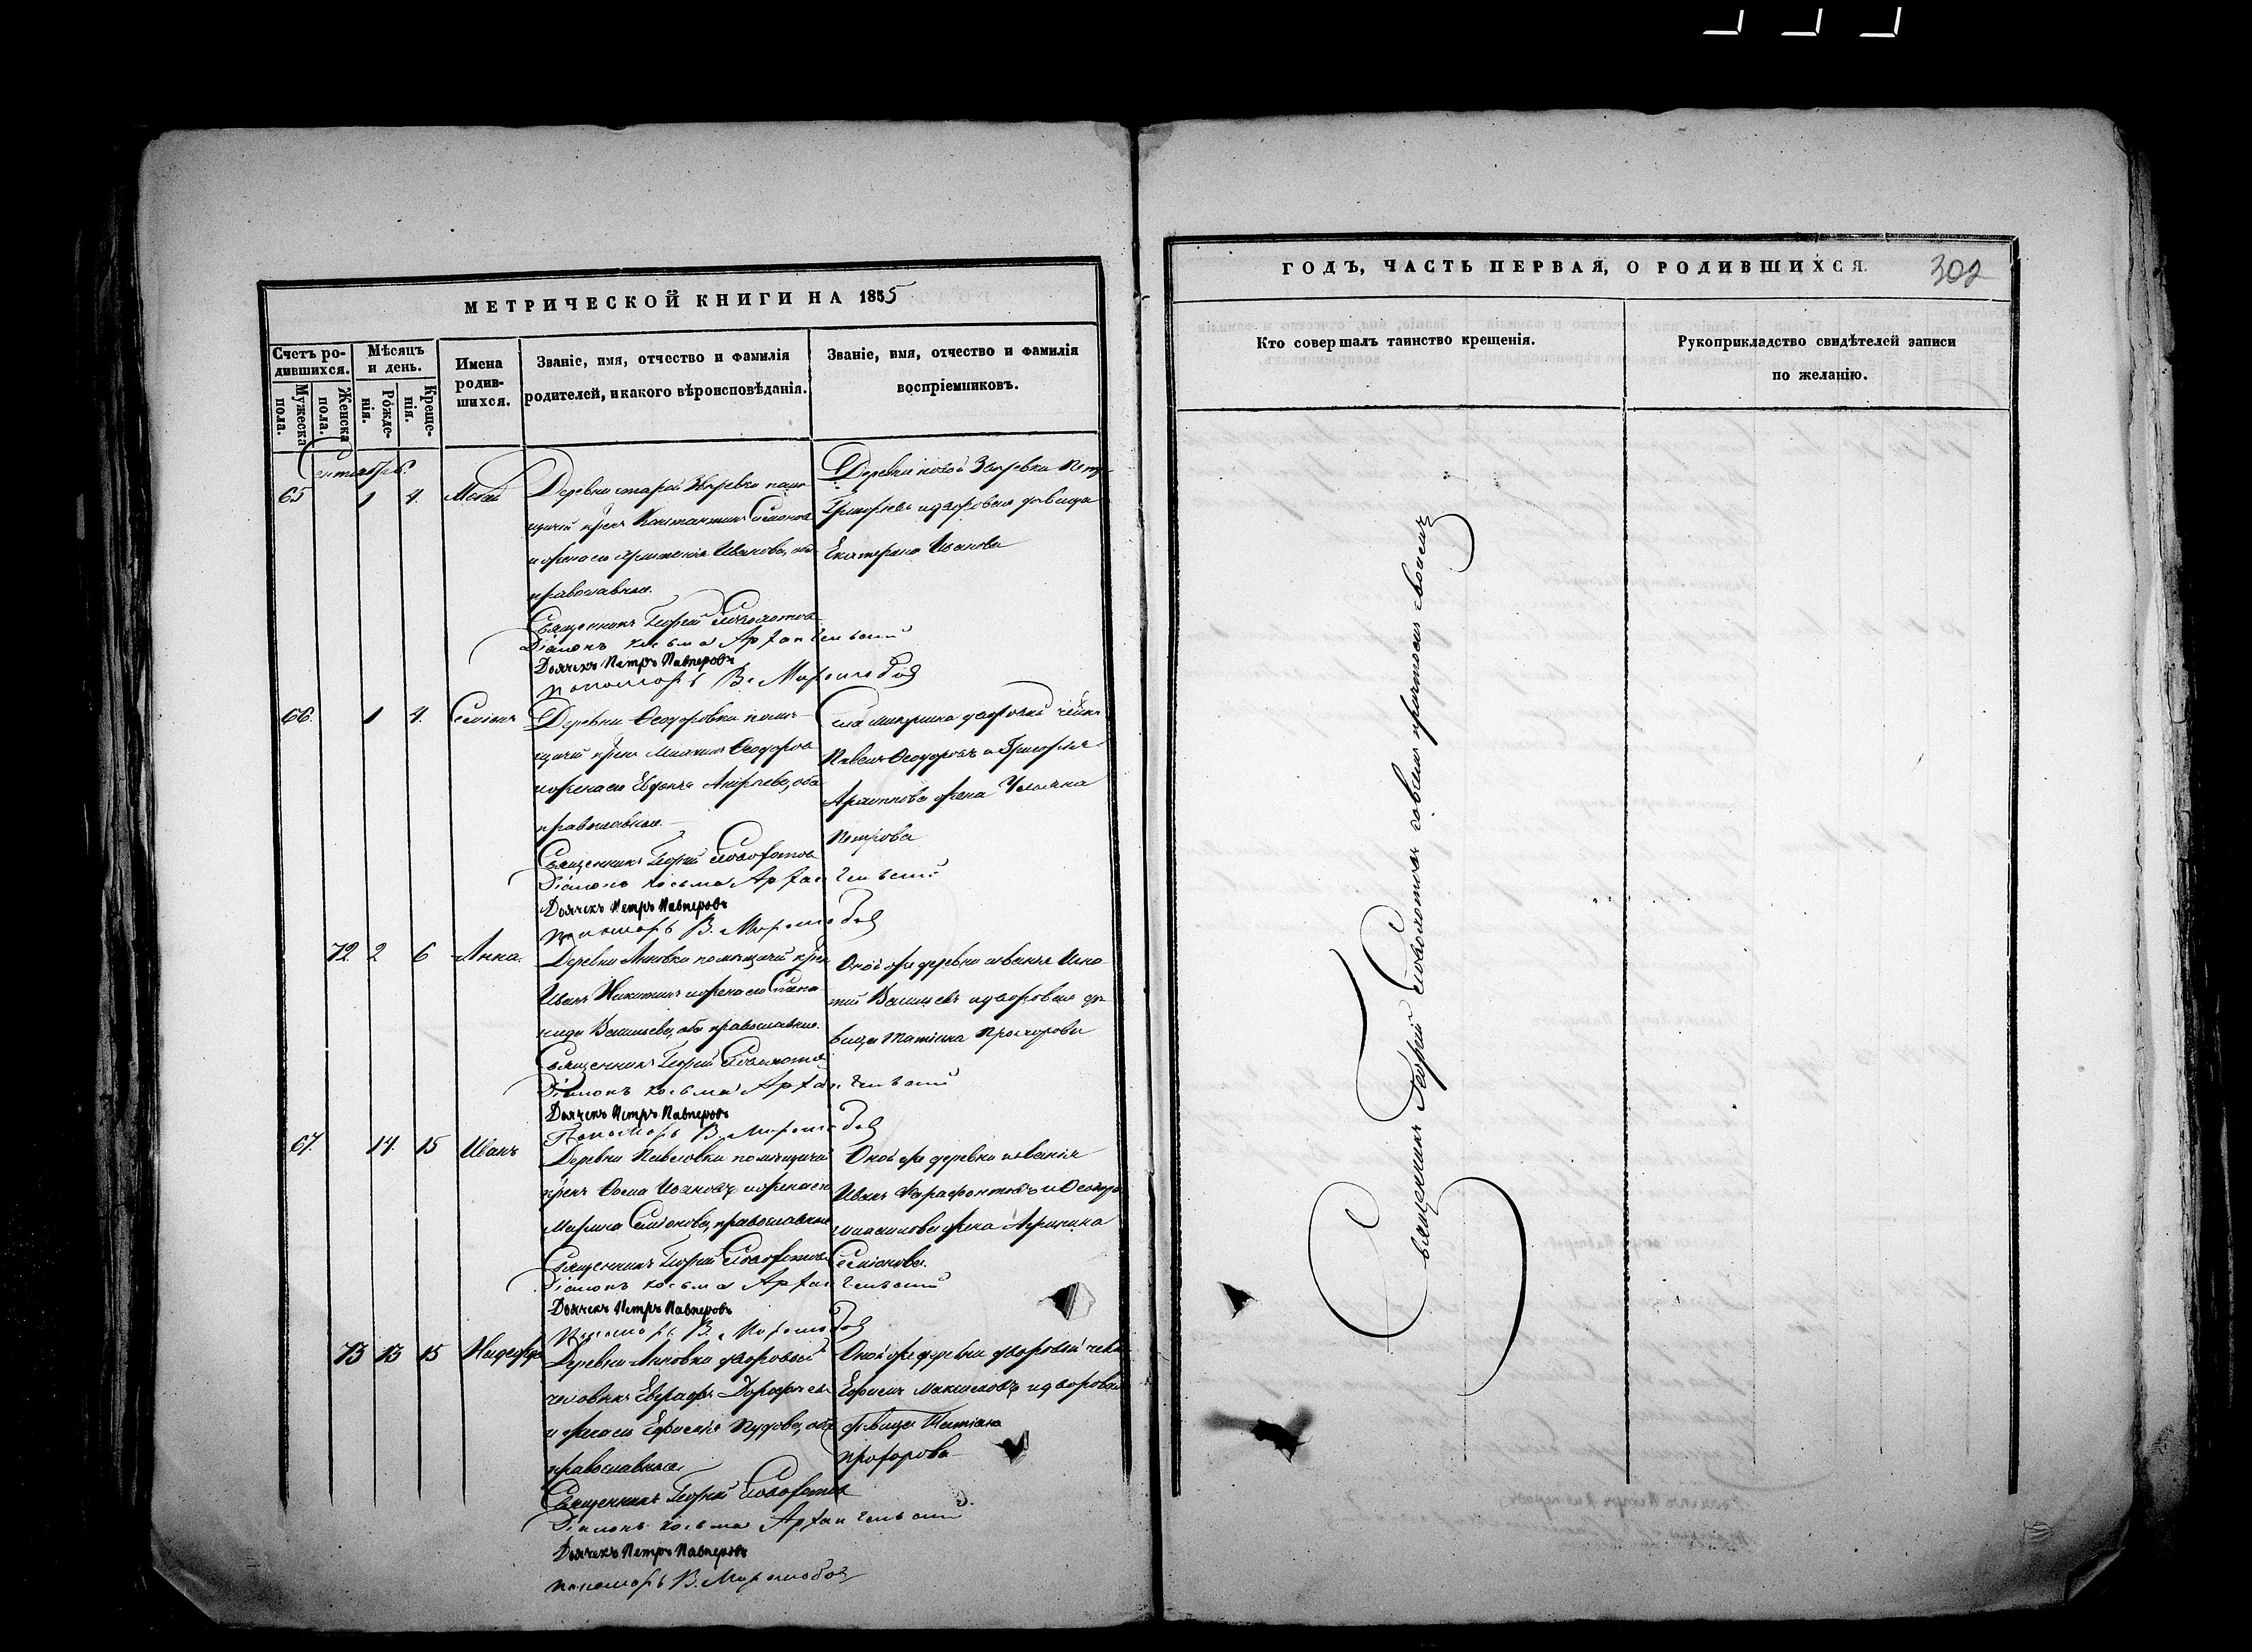 МЕТРИЧЕСКОЙ КНИГИ НА 1855
Счетъ ро-
дившихся.
Мужеска
пола.
Женска
пола.
Мѣсяцъ
и день.
Рожде-
нія.
Креще-
нія.
Имена
родив-
шихся.
Званіе, имя, отчество и фамилія
родителей, и какого вѣроисповѣданія.
Званіе, имя, отчество и фамилія
воспріемниковъ.
Сентябрь.
65 1 4.
Деревни старой Звѣревки помѣ-
щичій крен Константинъ Семіоновъ
и жена его Иванова, оба
православные.
Священникъ Георгій
Діаконъ Косьма Архангельскій
Дьячекъ Петръ Павперовъ
Пономарь В.
Деревни новой Звѣревки Петръ
Григорьевъ и дворовая дѣвица
Екатерина Иванова
66. 1 4. Семіонъ
Деревни Ѳеодоровки помѣ-
щичій крен Михаилъ Ѳеодоровъ
и жена его Евдокія Андреева, оба
православные.
Священникъ Георгій
Діаконъ Косьма Архангельскій
Дьячекъ Петръ Павперовъ
Пономарь В.
Села дворовый
Павелъ Ѳеодоровъ и Григорья
Архиппова жена Ульяна
Петрова
72 2 6 Анна.
Деревни Анновки помѣщичій крен
Иванъ Никитинъ и жена его Степа-
нида Васильева, оба православные.
Священникъ Георгій
Діаконъ Косьма Архангельскій
Дьячекъ Петръ Павперовъ
Пономарь В.
Оной же деревни Игна-
тій Васильевъ и дворовая дѣ-
вица Татіана Прохорова
67. 14. 15 Иванъ
Деревни Павловки помѣщичій
крен Ѳома Ивановъ и жена его
Марина Семіонова, православные
Священникъ Георгій
Діаконъ Косьма Архангельскій
Дьячекъ Петръ Павперовъ
Пономарь В.
Оной же деревни
Иванъ и Ѳеодора
жена
Семіонова.
73 13 15 Надежда
Деревни Анновки дворовый
человѣкъ Евграфъ Дорофеевъ
и жена его Евфимія оба
православные
Священникъ Георгій
Діаконъ Косьма Архангельскій
Дьячекъ Петръ Павперовъ
Пономарь В.
Оной же деревни дворовый челов
Ефимъ Максимовъ и дворовая
дѣвица Татіана
Прохорова
ГОДЪ, ЧАСТЬ ПЕРВАЯ, О РОДИВШИХСЯ.
302
Кто совершалъ таинство крещенія.
Рукоприкладство свидѣтелей записи
по желанію.
Священникъ Георгій со всемъ причтомъ своимъ